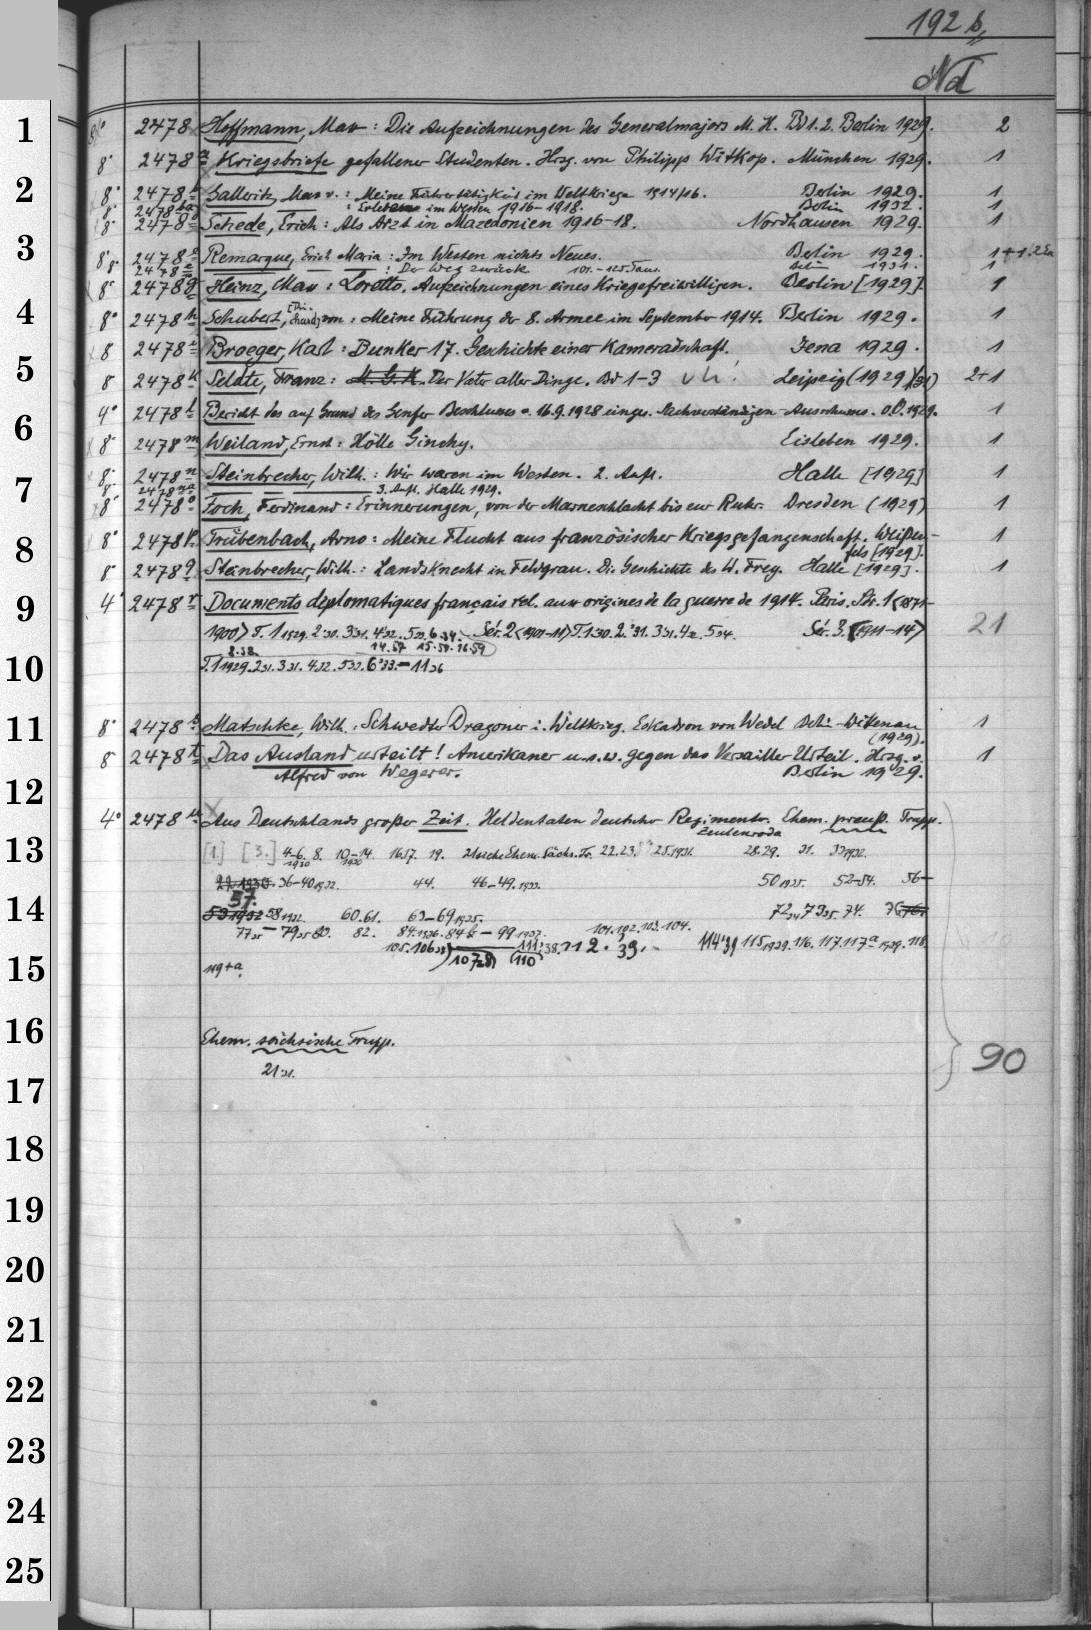 192 b
Nd
1
8° 2478 Hoffmann, Max : Die Aufzeichnungen des Generalmajors M. H. Bd 1.2. Berlin 1929. 2
8° 2478 a Kriegsbriefe gefallener Studenten. Hrsg. von Philipp Witkop. München 1929. 1
2
8° 2478 b Gallwitz, Max v. : Meine Führertätigkeit im Weltkriege 1914/16. Berlin 1929. 1
8° 2478 ba — : Erleben im Westen 1916–1918. Berlin 1932. 1
8° 2478 Schede, Erich : Als Arzt in Mazedonien 1916–18. Nordhausen 1929. 1
3
8° 2478 e Remarque, Erich Maria : Im Westen nichts Neues. Berlin 1929. 1+1
8° 2478 — — : Der Weg zurück 101.–125. Taus. 1931. 1
8° 2478 g Heinz, Max : Loretto. Aufzeichnungen eines Kriegsfreiwilligen. Berlin [1929]. 1
4
8° 2478 h Schubert, von : Meine Führung der 8. Armee im September 1914. Berlin 1929. 1
8 2478 i Broeger, Karl : Bunker 17. Geschichte einer Kameradschaft. Jena 1929. 1
5
8 2478 k Seldte, Franz : M. G. K. Der Vater aller Dinge. Bd 1–3 Leipzig (1929)(31) 2+1
4° 2478 l Bericht des auf Grund des Genfer Beschlusses v. 16.9.1928 einges. Sachverständigen-Ausschusses. o.O. 1929. 1
6
8° 2478 m Weiland, Ernst : Hölle Ginchy. Eisleben 1929. 1
8° 2478 n Steinbrecher, Wilh. : Wir waren im Westen. 2. Aufl. Halle [1929] 1
7
8° 2478 na — — 3. Aufl. Halle 1929.
8° 2478 o Foch, Ferdinand : Erinnerungen, von der Marneschlacht bis zur Ruhr. Dresden (1929) 1
8
8° 2478 p Trübenbach, Arno : Meine Flucht aus französischer Kriegsgefangenschaft. Weißen-
fels [1929]. 1
8° 2478 q Steinbrecher, Wilh. : Landsknecht in Feldgrau. Die Geschichte des W. Frey. Halle [1929]. 1
9
4° 2478 r Documents deplomatiques français rel. aux origines de la guerre de 1914. Paris. Sér. 1 <1871–
1900> T. 1 1929. 2 '30. 3 31. 4 '32. 5 33. 6 34. Sér. 2 <1901–11> T. 1 30. 2 '31. 3 31. 4 32. 5 34. Sér. 3. <1911–14> 21
8.38. 14.57 15.58. 16.59
10
T. 1 1929. 2 31. 3 31. 4 32. 5 32. 6 '33.–11 36
11
8° 2478 s Matschke, Wilh. : Schwedter Dragoner i. Weltkrieg. Eskadron von Wedel Bln-Wittenau
(1929). 1
8 2478 t Das Ausland urteilt ! Amerikaner u.s.w. gegen das Versailler Urteil. Hrsg. v. 1
Alfred von Wegerer. Berlin 1929.
12
4° 2478 u Aus Deutschlands großer Zeit. Heldentaten deutscher Regimenter. Ehem. preuß. Trupp.
Zeulenroda
13
[1.] [3.] 4–6. 8. 10–14. 16 17. 19. 21 siehe Ehem. Sächs. Tr. 22.23. 25 1931. 28.29. 31. 33 1932.
1930 1930
36–40 1932. 44. 46–49. 1933. 50 1935. 52–54. 56–
57.
14
58 1932. 60.61. 63–69 1935. 72 34 73 35. 74. 76
77 35 – 79 35 80. 82. 84. 1936. 84 b – 99 1937. 101.102. 103. 104.
105. 106 107 28 110 111 38. 112. 39. 114 '39 115 1939. 116. 117. 117 a 1939. 118.
15
119+a
16
Ehem. sächsische Trupp.
90
21 31.
17
18
19
20
21
22
23
24
25